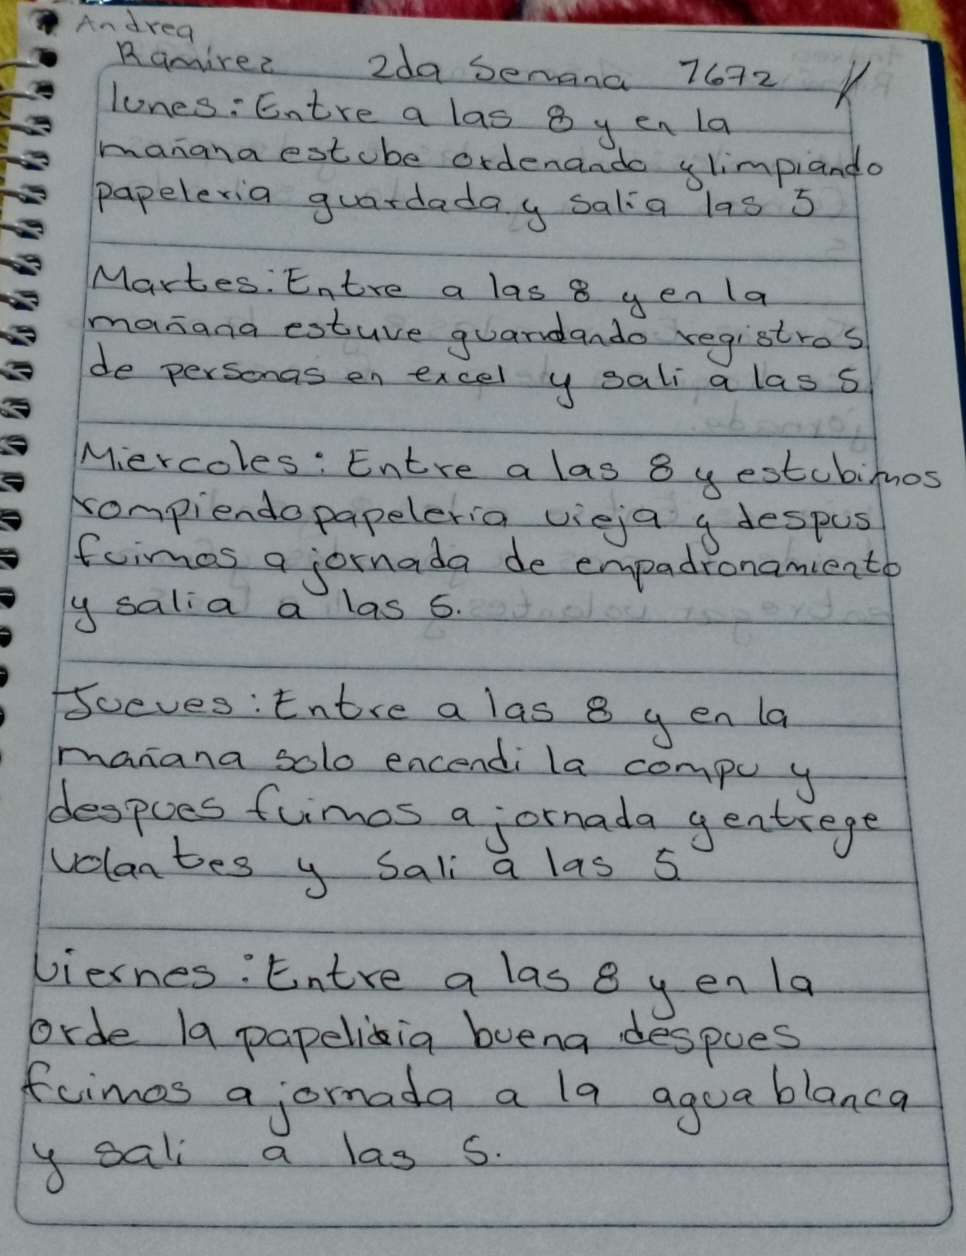 Andrea
Ramirez 2da Semana 7672
lunes: Entre a las 8 y en la
mañana estube ordenando y limpiando
papeleria guardada y salia las 5
Martes: Entre a las 8 y en la
mañana estuve guardando registros
de personas en excel y sali a las 5
Miercoles: Entre a las 8 y estubimos
rompiendo papeleria vieja y despus
fuimos a jornada de empadronamiento
y salia a las 5.
Jueves: Entre a las 8 y en la
mañana solo encendi la compu y
despues fuimos a jornada y entrege
volantes y Sali a las 5
Viernes: Entre a las 8 y en la
orde la papeliria buena despues
fuimos a jornada a la agua blanca
y sali a las 5.